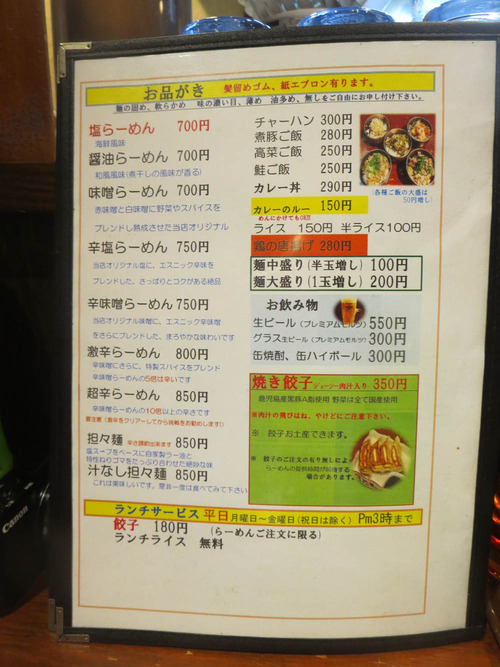 お品がき 髪留めゴム、紙エプロン有ります。
麺の固め、軟らかめ 味の濃い目、薄め 油多め、無しをご自由にお申し付け下さい。
塩らーめん 700円
海鮮風味
醤油らーめん 700円
和風風味(煮干しの風味が香る)
味噌らーめん 700円
赤味噌と白味噌に野菜やスパイスを
ブレンドし熟成させた当店オリジナル
辛塩らーめん 750円
当店オリジナル塩に、エスニック辛味を
ブレンドした、さっぱりとコクがある絶品
辛味噌らーめん 750円
当店オリジナル味噌に、エスニック辛味噌
をさらにブレンドした、まろやかな味わいです
激辛らーめん 800円
辛味噌にさらに、特製スパイスをブレンド
辛味噌らーめんの5倍は辛いです
超辛らーめん 850円
辛味噌らーめんの10倍以上の辛さです
要注意(激辛をクリアーしてから挑戦をお勧めします!)
担々麺 辛さ調節出来ます 850円
塩スープをベースに自家製ラー油と
特性ねりゴマをたっぷり合わせた絶妙な味
汁なし担々麺 850円
これは美味しいです。是非一度は食べてみて下さい
チャーハン 300円
煮豚ご飯 280円
高菜ご飯 250円
鮭ご飯 250円
カレー丼 290円
(各種ご飯の大盛は
50円増し)
カレーのルー 150円
めんにかけてもGOOD
ライス 150円 半ライス100円
鶏の唐揚げ 280円
麺中盛り(半玉増し) 100円
麺大盛り(1玉増し) 200円
お飲み物
生ビール(プレミアムモルツ) 550円
グラス生ビール(プレミアムモルツ) 300円
缶焼酎、缶ハイボール 300円
焼き餃子 ジューシー肉汁入り 350円
鹿児島産黒豚A脂使用 野菜は全て国産使用
※肉汁の飛びはね、やけどにご注意下さい。
※ 餃子お土産できます。
※ 餃子のご注文の有り無しにより
らーめんの提供時間が前後する
場合があります。
ランチサービス 平日 月曜日~金曜日(祝日は除く) Pm3時まで
餃子 180円 (らーめんご注文に限る)
ランチライス 無料
Canon